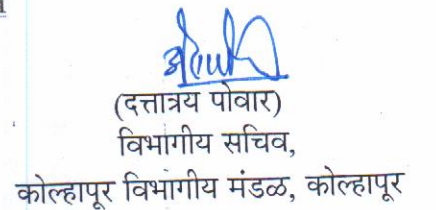 (दत्तात्रय पोवार)
विभागीय सचिव,
कोल्हापूर विभागीय मंडळ, कोल्हापूर